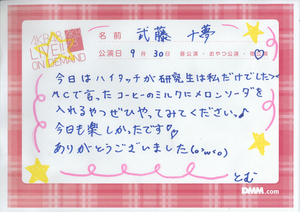 AKB48
LIVE!!
ON DEMAND
名前 武藤 十夢
公演日 9月30日 昼公演・おやつ公演・夜公演
今日はハイタッチが研究生は私だけでしたっ
MCで言ったコーヒーのミルクにメロンソーダを
入れるやつぜひやってみてください。♪
今日も楽しかったです♡
ありがとうございました(o・ω・o)
とむ
DMM.com